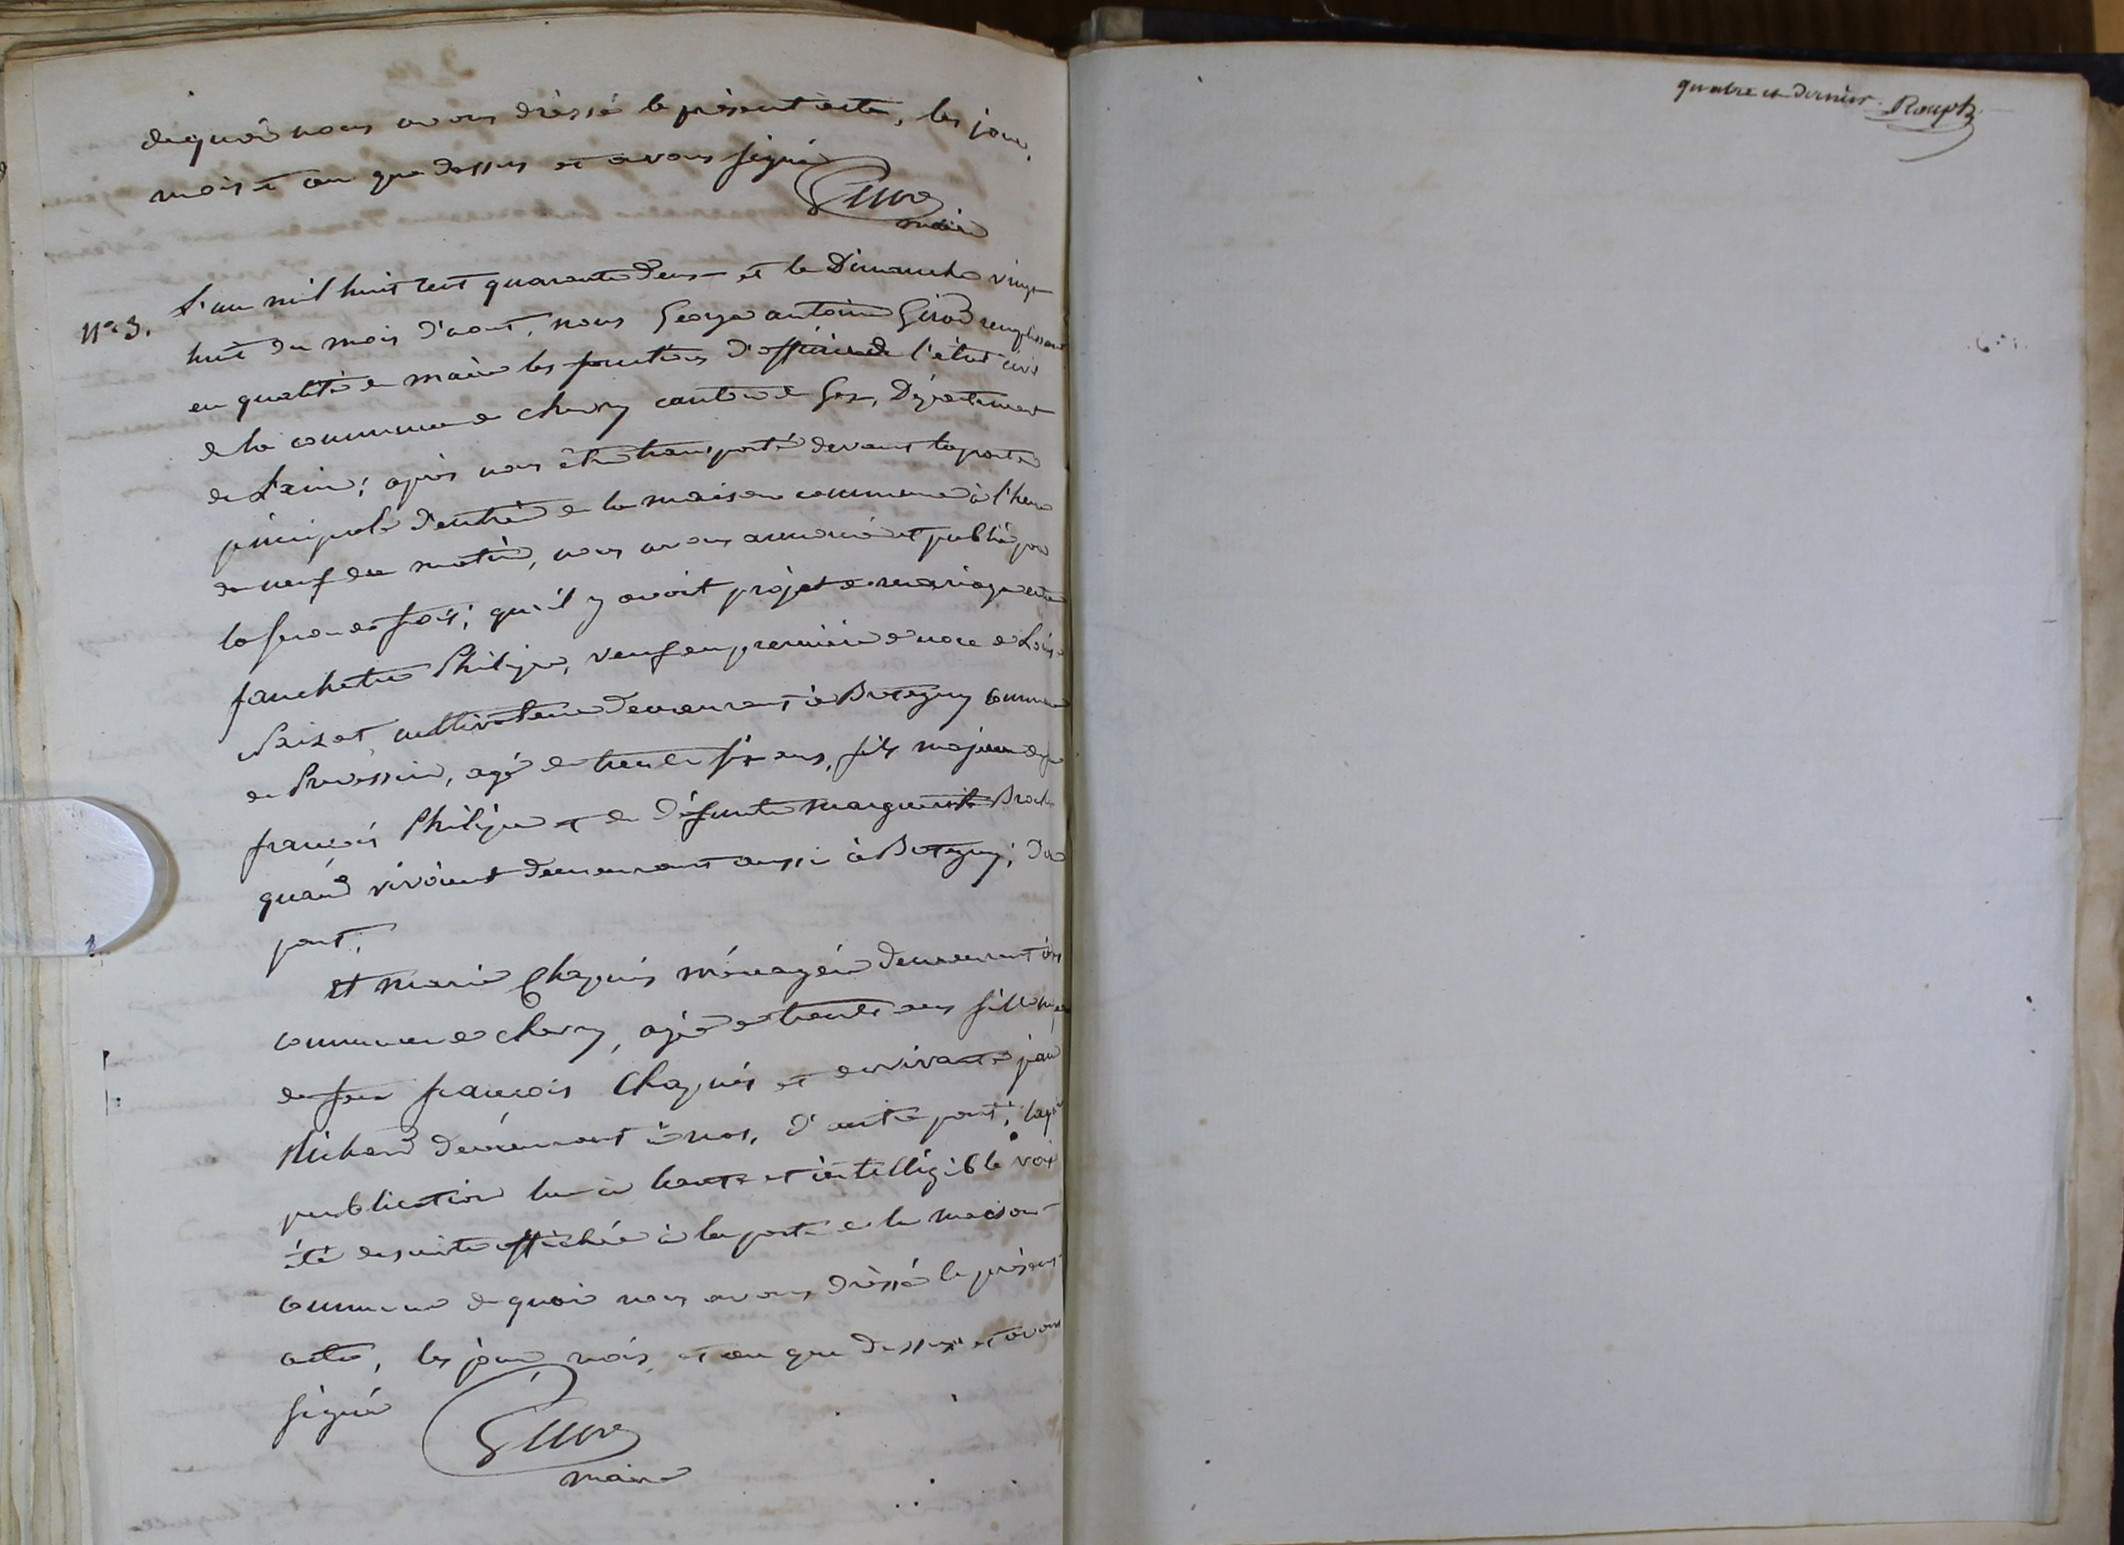 de quoi nous avons dréssé le présent acte, les jour,
mois et an que dessus et avons signé
Girod
maire
N° 3. L'an mil huit cent quarante deux et le Dimanche vingt
huit du mois d'aout, nous George antoine Girod remplissant
en qualité de maire les fonctions d'officier de l'état civil
de la commune de chevry canton de Gex, Département
de L'ain; après nous être transporté devant la porte
principale d'entrée de la maison commune à l'heure
de neuf du matin, nous avons annoncé et publié pour
la seconde fois; qu'il y avoit projet de mariage entre
Philippe, veuf en première noce de Louise
cultivateur demeurant à Bretegny commune
de Prévessin, agé de trente six ans, fils majeur de
françois Philippe et de défunte marguerite
quand vivoient demeurant aussi à Bretegny; d'une
part;
et marie Chapuis ménagère demeurant à
commune de chevry, agée de trente ans fille majeure
de feu françois Chapuis et de vivante
Michard demeurant à d'autre part;
publication lue à haute et intelligible voix
été de suite affichée à la porte de la maison
commune de quoi nous avons dréssé le présent
acte, les jour, mois, et an que dessus et avons
signé
Girod
maire
quatre et dernier. Rouph